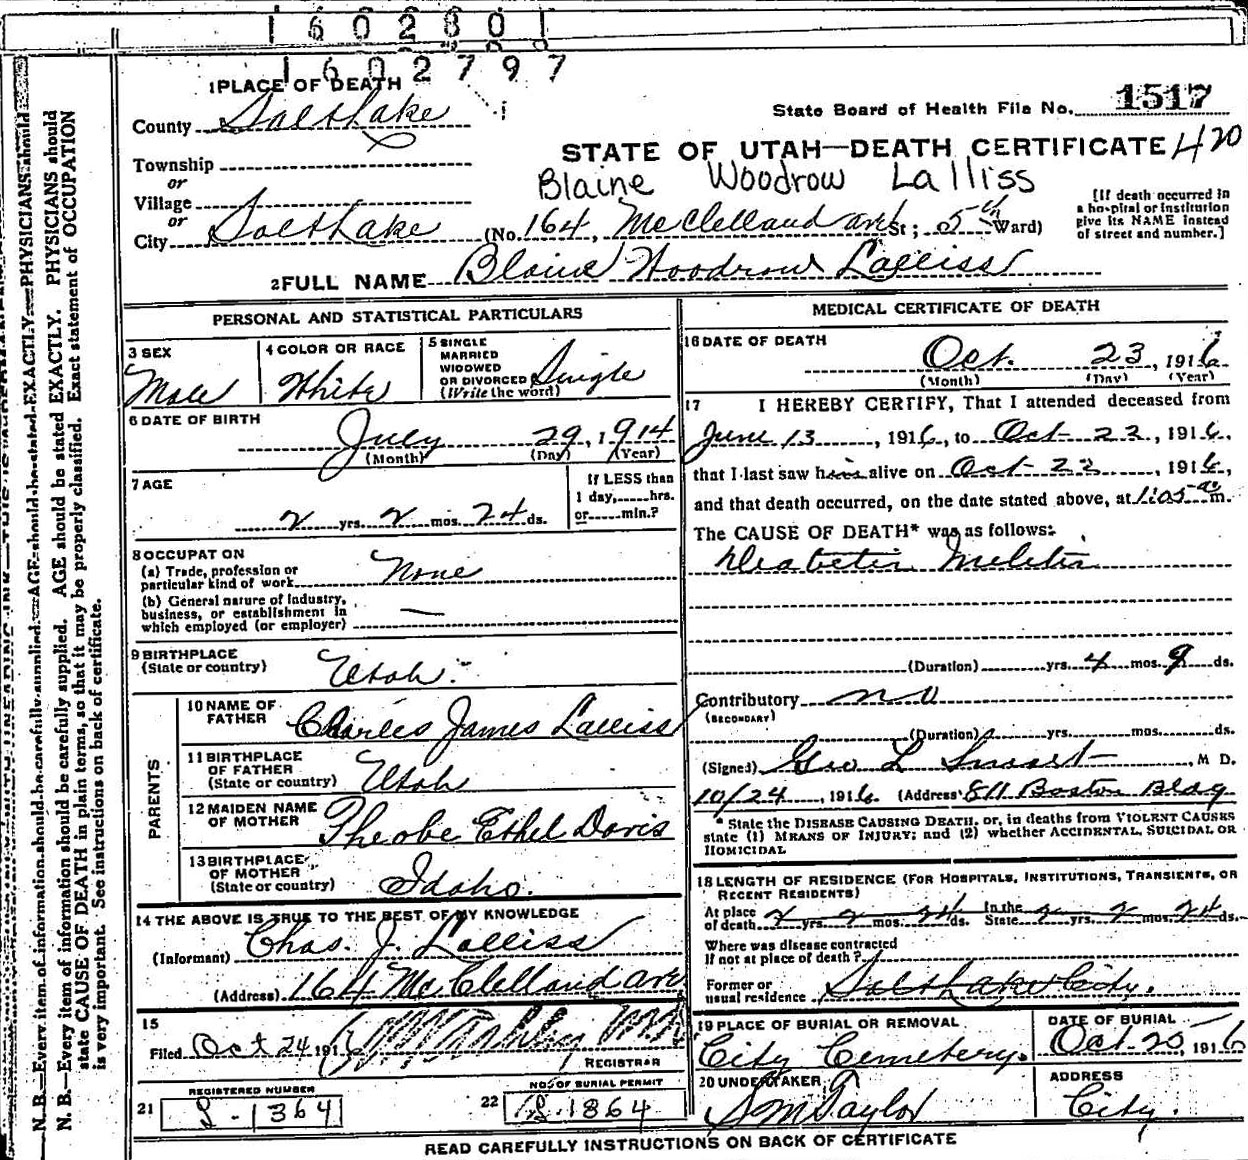 1602801
1602797
1 PLACE OF DEATH
County Salt Lake
State Board of Health File No. 1517
Township
or
STATE OF UTAH—DEATH CERTIFICATE 420
Blaine Woodrow Lalliss
Village
or
City Salt Lake (No. 164, McClelland ave St; 5th Ward)
[If death occurred in
a hospital or institution
give its NAME instead
of street and number.]
2 FULL NAME Blaine Woodrow Lalliss
PERSONAL AND STATISTICAL PARTICULARS
3 SEX
Male
4 COLOR OR RACE
White
5 SINGLE
MARRIED
WIDOWED
OR DIVORCED Single
(Write the word)
6 DATE OF BIRTH
July 29, 1914
(Month) (Day) (Year)
7 AGE
2 yrs. 2 mos. 24 ds.
If LESS than
1 day, hrs.
or min.?
8 OCCUPATION
(a) Trade, profession or
particular kind of work None
(b) General nature of industry,
business, or establishment in
which employed (or employer) —
9 BIRTHPLACE
(State or country) Utah.
PARENTS
10 NAME OF
FATHER Charles James Lalliss
11 BIRTHPLACE
OF FATHER
(State or country) Utah
12 MAIDEN NAME
OF MOTHER Pheobe Ethel Davis
13 BIRTHPLACE
OF MOTHER
(State or country) Idaho.
14 THE ABOVE IS TRUE TO THE BEST OF MY KNOWLEDGE
(Informant) Chas. J. Lalliss
(Address) 164 McClelland ave
15
Filed Oct 24 1916
REGISTRAR
REGISTERED NUMBER
21 S-1364
NO. OF BURIAL PERMIT
22 1864
MEDICAL CERTIFICATE OF DEATH
16 DATE OF DEATH
Oct. 23, 1916
(Month) (Day) (Year)
17 I HEREBY CERTIFY, That I attended deceased from
June 13, 1916, to Oct 22, 1916,
that I last saw him alive on Oct 22, 1916,
and that death occurred, on the date stated above, at 1:05 am.
The CAUSE OF DEATH* was as follows:
Diabetis Melitis
(Duration) yrs. 4 mos. 9 ds.
Contributory no
(SECONDARY)
(Duration) yrs. mos. ds.
(Signed) Geo L Smart, M D.
10/24, 1916 (Address) 811 Boston Bldg
* State the DISEASE CAUSING DEATH, or, in deaths from VIOLENT CAUSES
state (1) MEANS OF INJURY; and (2) whether ACCIDENTAL, SUICIDAL OR
HOMICIDAL
18 LENGTH OF RESIDENCE (FOR HOSPITALS, INSTITUTIONS, TRANSIENTS, OR
RECENT RESIDENTS)
At place of death 2 yrs. 2 mos. 24 ds. In the State 2 yrs. 2 mos. 24 ds.
Where was disease contracted
if not at place of death?
Former or
usual residence Salt Lake City.
19 PLACE OF BURIAL OR REMOVAL
City Cemetery.
DATE OF BURIAL
Oct 25, 1916
20 UNDERTAKER
S M Taylor
ADDRESS
City.
READ CAREFULLY INSTRUCTIONS ON BACK OF CERTIFICATE
N. B.—Every item of information should be carefully supplied. AGE should be stated EXACTLY. PHYSICIANS should
N. B.—Every item of information should be carefully supplied. AGE should be stated EXACTLY. PHYSICIANS should
state CAUSE OF DEATH in plain terms, so that it may be properly classified. Exact statement of OCCUPATION
is very important. See instructions on back of certificate.